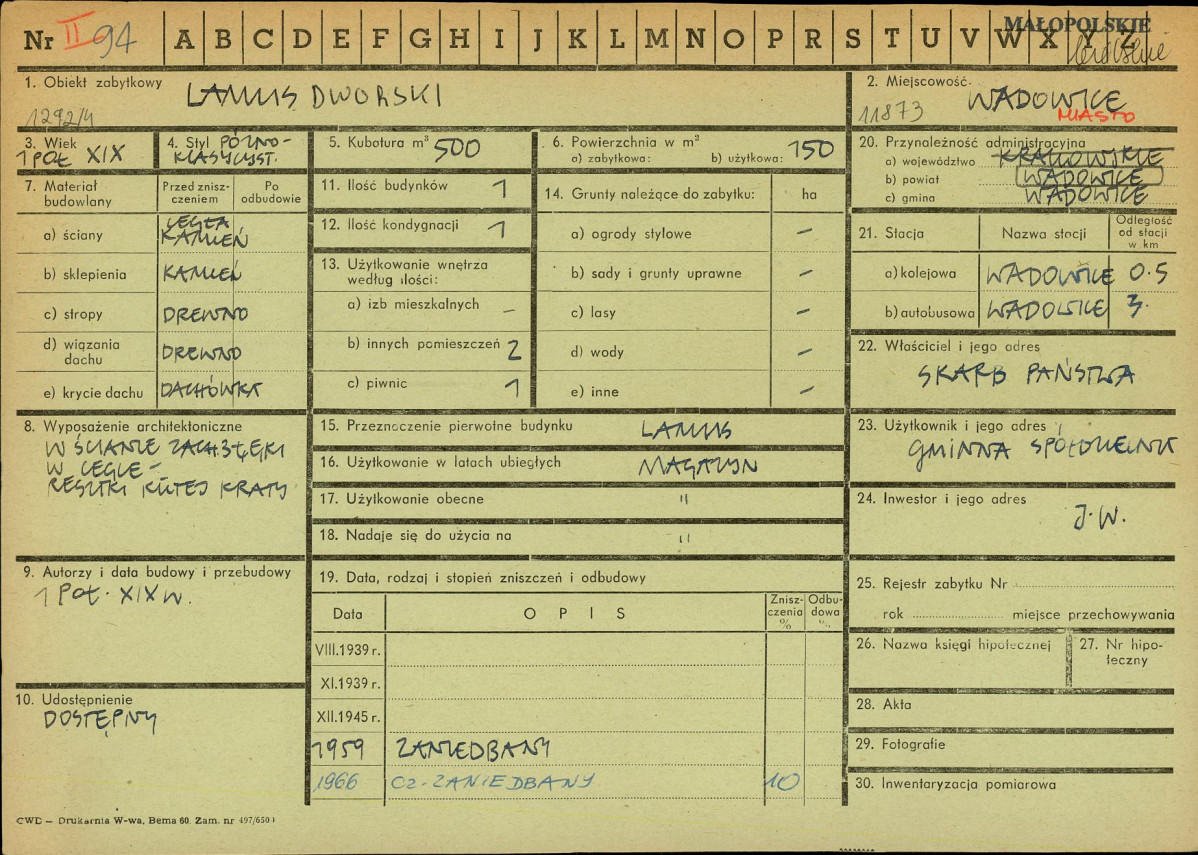 Nr II 94 A B C D E F G H I J K L M N O P R S T U V W X Y Z
MAŁOPOLSKIE
1. Obiekt zabytkowy
LAMUS DWORSKI
1292/4
2. Miejscowość
11873 WADOWICE
MIASTO
3. Wiek
1 POŁ XIX
4. Styl PÓŹNO-
KLASYCYST.
5. Kubatura m³ 500
6. Powierzchnia w m³
a) zabytkowa: b) użytkowa: 150
7. Materiał
budowlany
Przed znisz-
czeniem
Po
odbudowie
a) ściany
CEGŁA
KAMIEŃ
b) sklepienia KAMIEŃ
c) stropy DREWNO
d) wiązania
dachu DREWNO
e) krycie dachu DACHÓWKA
8. Wyposażenie architektoniczne
W ŚCIANIE ZACH. 3 ŁĘKI
W CEGLE –
RESZTKI KUTEJ KRATY
9. Autorzy i data budowy i przebudowy
1 POŁ. XIX W.
10. Udostępnienie
DOSTĘPNY
11. Ilość budynków 1
12. Ilość kondygnacji 1
13. Użytkowanie wnętrza
według ilości:
a) izb mieszkalnych –
b) innych pomieszczeń 2
c) piwnic 1
14. Grunty należące do zabytku: ha
a) ogrody stylowe –
b) sady i grunty uprawne –
c) lasy –
d) wody –
e) inne –
15. Przeznaczenie pierwotne budynku LAMUS
16. Użytkowanie w latach ubiegłych MAGAZYN
17. Użytkowanie obecne "
18. Nadaje się do użycia na "
19. Data, rodzaj i stopień zniszczeń i odbudowy
Data OPIS Znisz-
czenia
%
Odbu-
dowa
%
VIII.1939 r.
XI.1939 r.
XII.1945 r.
1959 ZANIEDBANY
1966 CZ. ZANIEDBANY 10
20. Przynależność administracyjna
a) województwo KRAKOWSKIE
b) powiat WADOWICE
c) gmina WADOWICE
21. Stacja Nazwa stacji Odległość
od stacji
w km
a) kolejowa WADOWICE 0.5
b) autobusowa WADOWICE 3.
22. Właściciel i jego adres
SKARB PAŃSTWA
23. Użytkownik i jego adres
GMINNA SPÓŁDZIELNIA
24. Inwestor i jego adres
J.W.
25. Rejestr zabytku Nr
rok miejsce przechowywania
26. Nazwa księgi hipotecznej
27. Nr hipo-
teczny
28. Akta
29. Fotografie
30. Inwentaryzacja pomiarowa
CWD – Drukarnia W-wa, Bema 60. Zam. nr 497/650